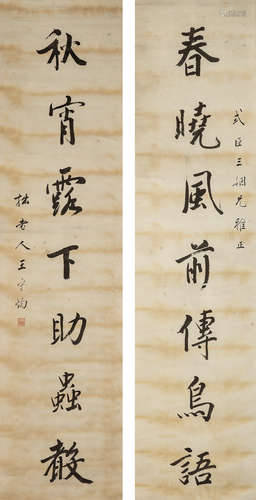 春曉風前傳鳥語
式臣三姻兄雅正
秋宵露下助蟲聲
拙老人王守恂